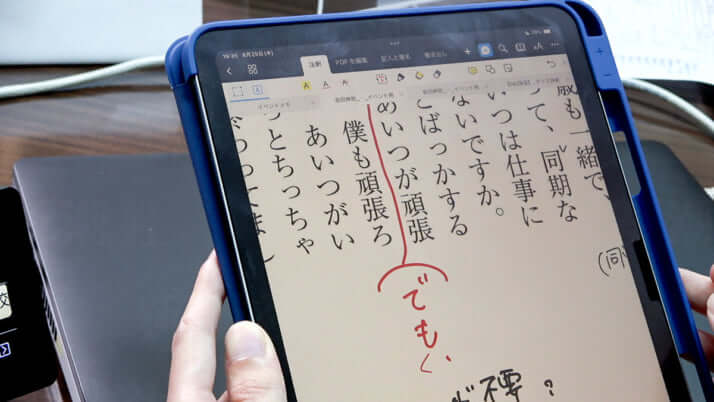 注釈
PDF を編集
記入と署名
書き出し
イベントメモ
も一緒で、
って、同期な
いつは仕事に
ないですか。
こばっかする
あいつが頑張
僕も頑張ろ
あいつがい
っとちっちゃ
わってまし
(同
でも、
不要?